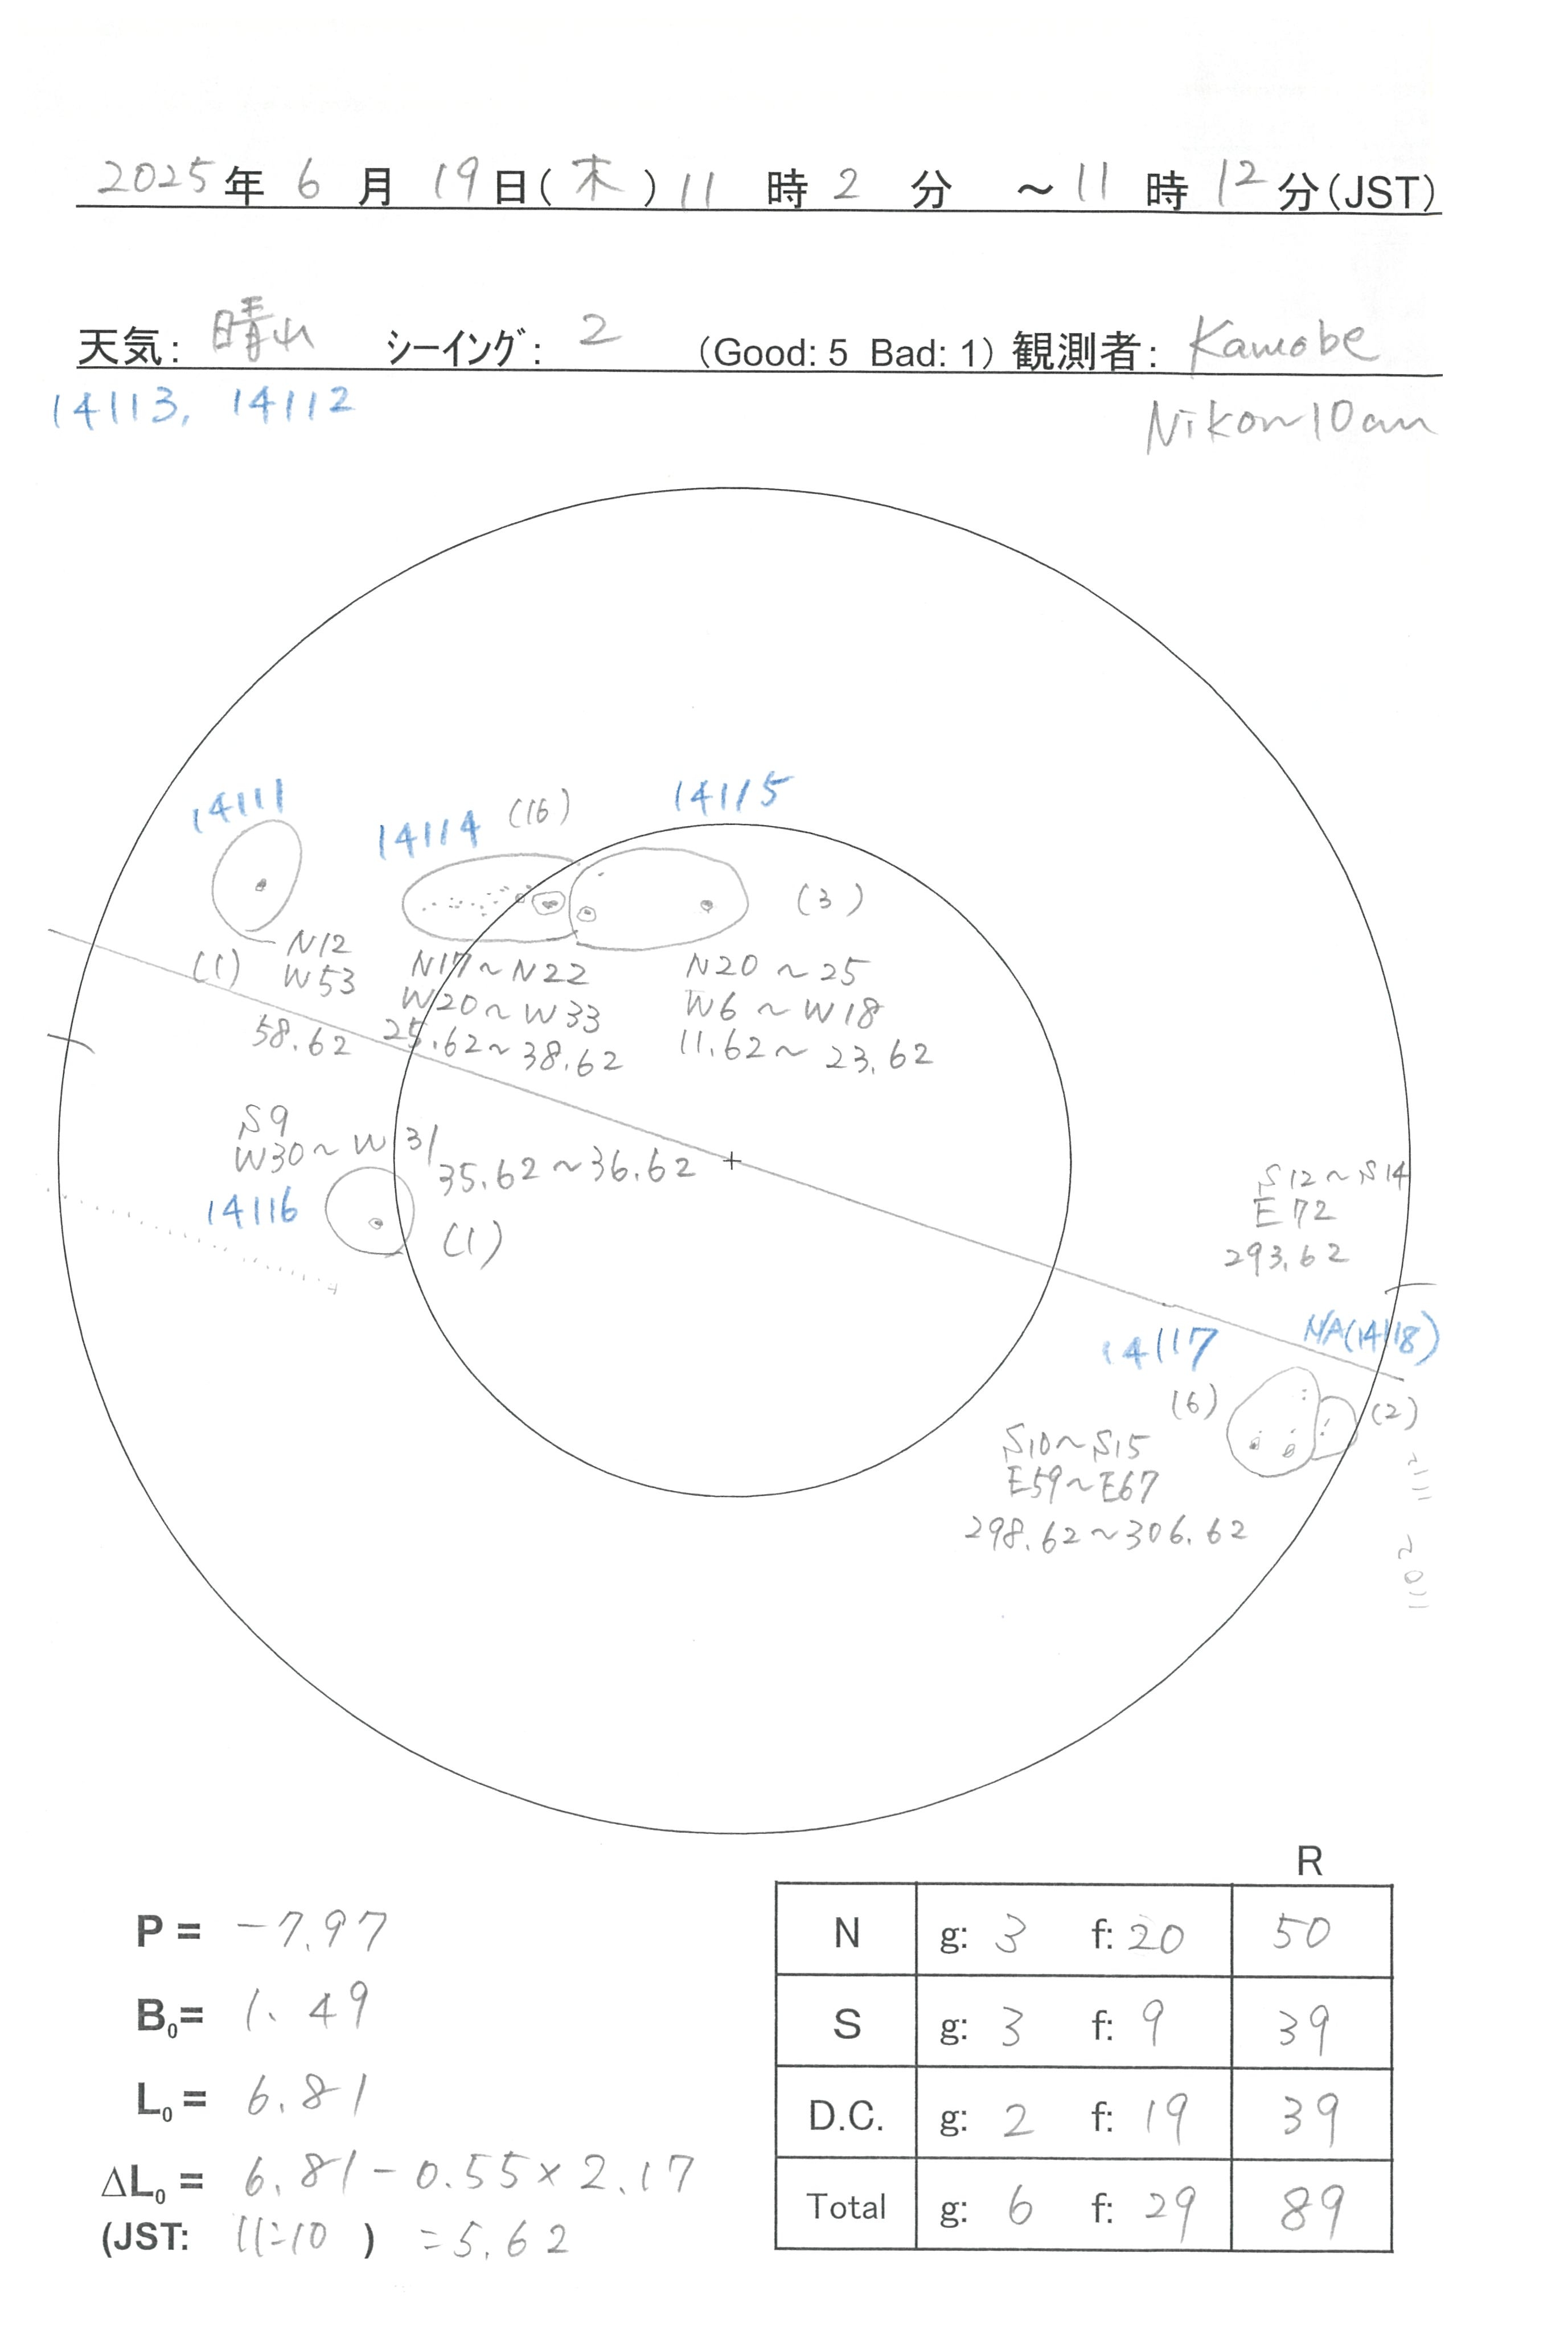 2025年 6 月 19日(木) 11 時 2 分 ～11 時 12分(JST)
天気: 晴れ シーイング: 2 (Good: 5 Bad: 1) 観測者: Kamobe
14113, 14112
Nikon10cm
14111
14114 (16)
14115
(3)
(1)
N12
W53
58.62
N17～N22
W20～W33
25.62～38.62
N20～25
W6～W18
11.62～23.62
S9
W30～W31
35.62～36.62
14116
(1)
S12～S14
E72
293.62
14117
NA(14118)
(6)
(2)
S10～S15
E59～E67
298.62～306.62
R
P = -7.97
B0= 1.49
L0= 6.81
ΔL0= 6.81-0.55×2.17
(JST: 11:10 ) =5.62
N g: 3 f: 20 50
S g: 3 f: 9 39
D.C. g: 2 f: 19 39
Total g: 6 f: 29 89